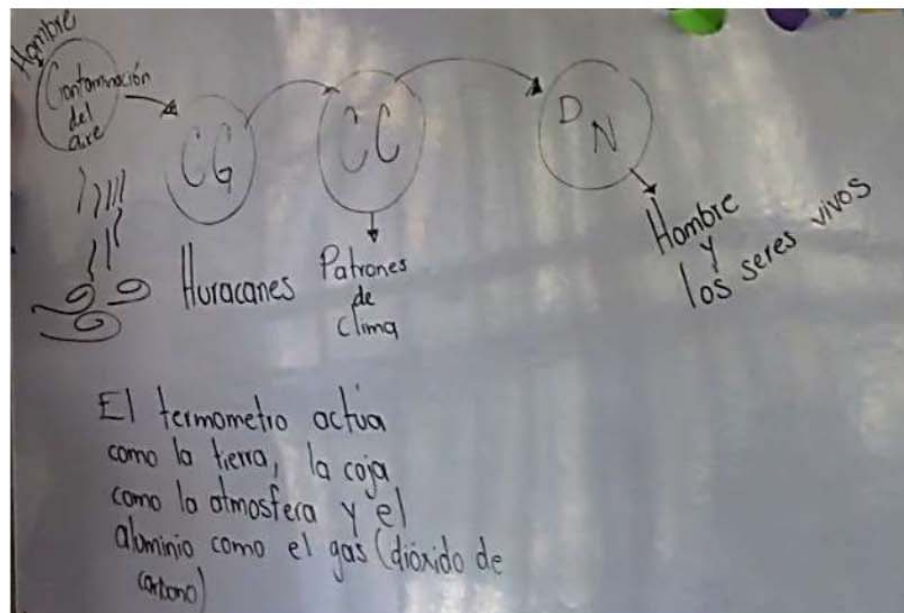 Hombre
Contaminación
del
aire
CG
CC
D
N
Huracanes
Patrones
de
clima
Hombre
y
los seres vivos
El termometro actúa
como la tierra, la caja
como la atmosfera y el
aluminio como el gas (dióxido de
carbono)